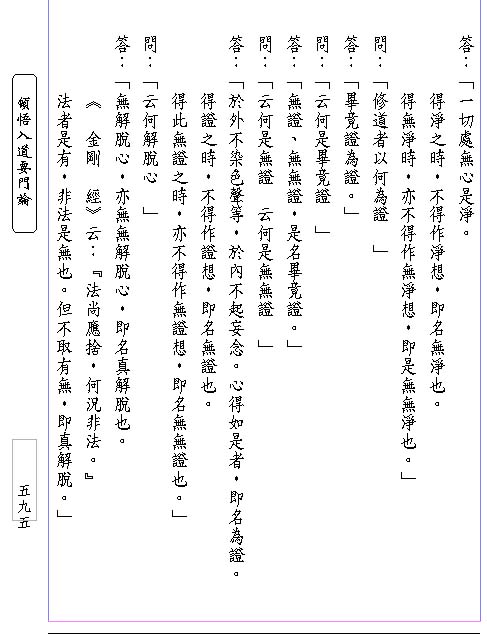 答：「一切處無心是淨。
得淨之時，不得作淨想，即名無淨也。
得無淨時，亦不得作無淨想，即是無無淨也。」
問：「修道者以何為證 」
答：「畢竟證為證。」
問：「云何是畢竟證 」
答：「無證、無無證，是名畢竟證。」
問：「云何是無證 云何是無無證 」
答：「於外不染色聲等，於內不起妄念。心得如是者，即名為證。
得證之時，不得作證想，即名無證也。
得此無證之時，亦不得作無證想，即名無無證也。」
問：「云何解脫心 」
答：「無解脫心，亦無無解脫心，即名真解脫也。
《 金剛 經》云：『法尚應捨，何況非法。』
法者是有，非法是無也。但不取有無，即真解脫。」
頓悟入道要門論
五九五